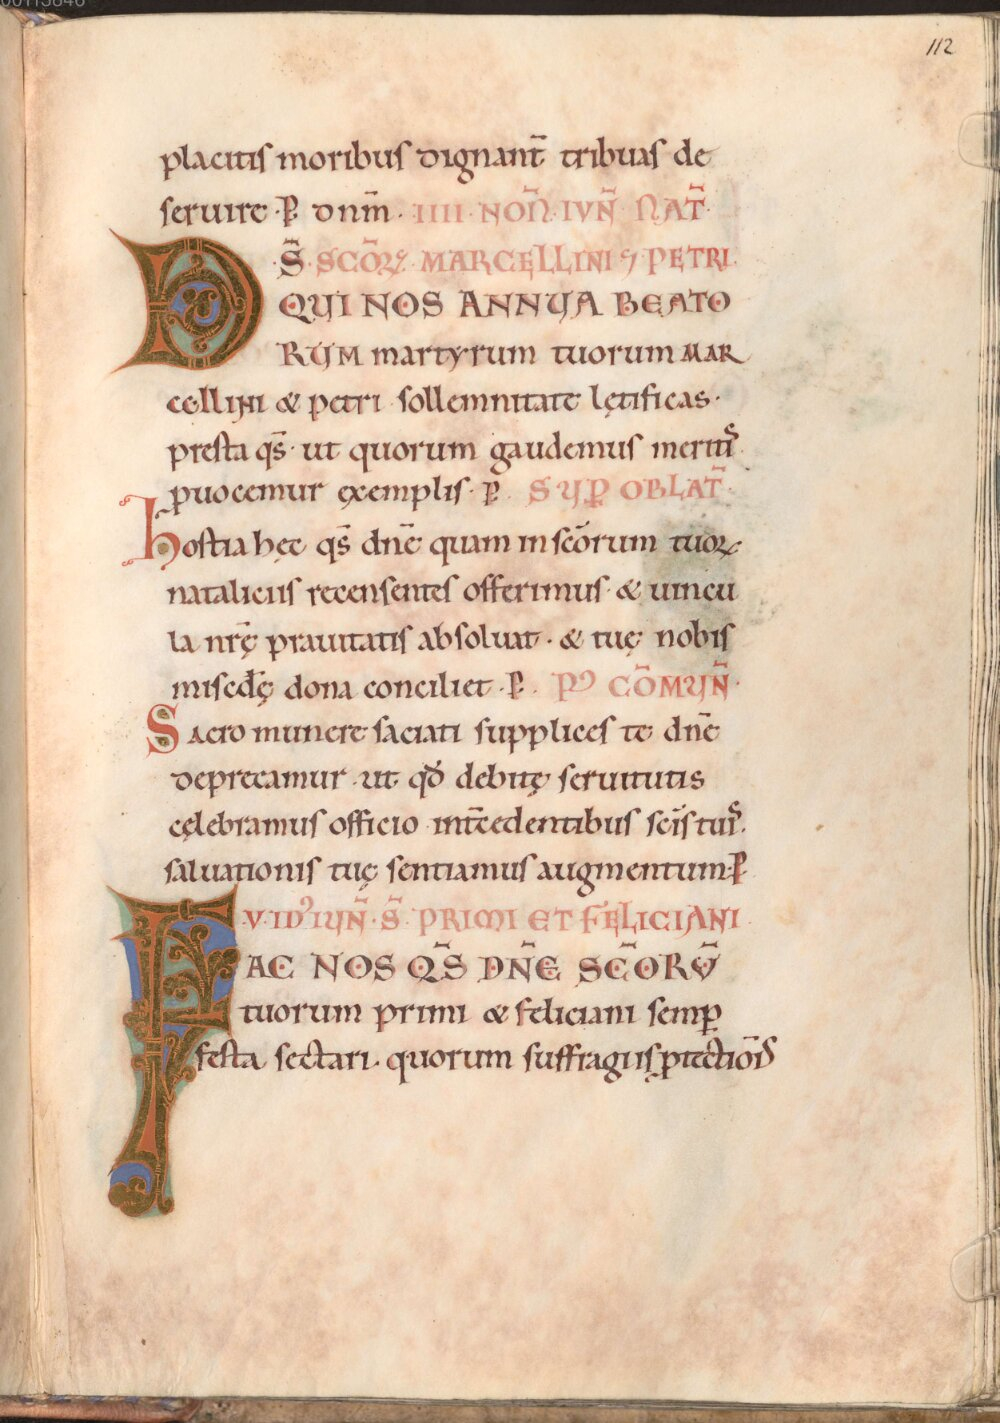 00113846
112
placitis moribus dignant̄ tribuas de
seruire · ꝑ dnm̄ · IIII · NOÑ · IVÑ · NAT̄
S̄ · SCŌꝜ MARCELLINI ⁊ PETRI
D QUI NOS ANNUA BEATO
RUM martyrum tuorum MAR
cellini & petri sollemnitate lętificas ·
presta qs̄ · ut quorum gaudemus meritis
ꝓuocemur exemplis · ꝑ · SUꝐ OBLAT̄ ·
hostia hęc qs̄ dnē quam in scōrum tuoꝝ
nataliciis recensentes offerimus · & uincu
la nrę̄ prauitatis absoluat · & tuę nobis
miscdę̄ dona conciliet · ꝑ · Pꝰ CŌMUÑ ·
Sacro munere saciati supplices te dnē
deprecamur · ut qđ debitę seruitutis
celebramus officio int̄cedentibus scīs tuis ·
saluationis tuę sentiamus augmentum · ꝑ
V · IDꝰ IUÑ · S̄ · PRIMI ET FELICIANI
FAC NOS Q̄S DÑE SC̄ORV̄
tuorum primi & feliciani semꝑ
festa sectari · quorum suffragiis ꝓtectiōis